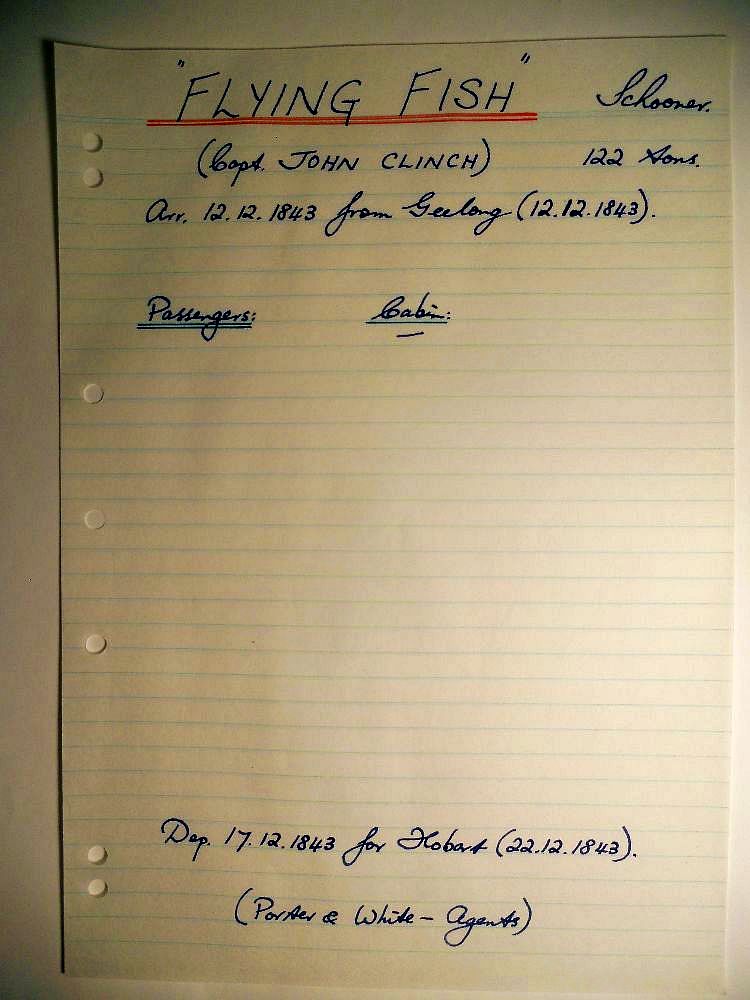 "FLYING FISH" Schooner.
(Capt. JOHN CLINCH) 122 tons.
Arr. 12.12.1843 from Geelong (12.12.1843).
Passengers: Cabin:
—
Dep. 17.12.1843 for Hobart (22.12.1843).
(Porter & White - Agents)